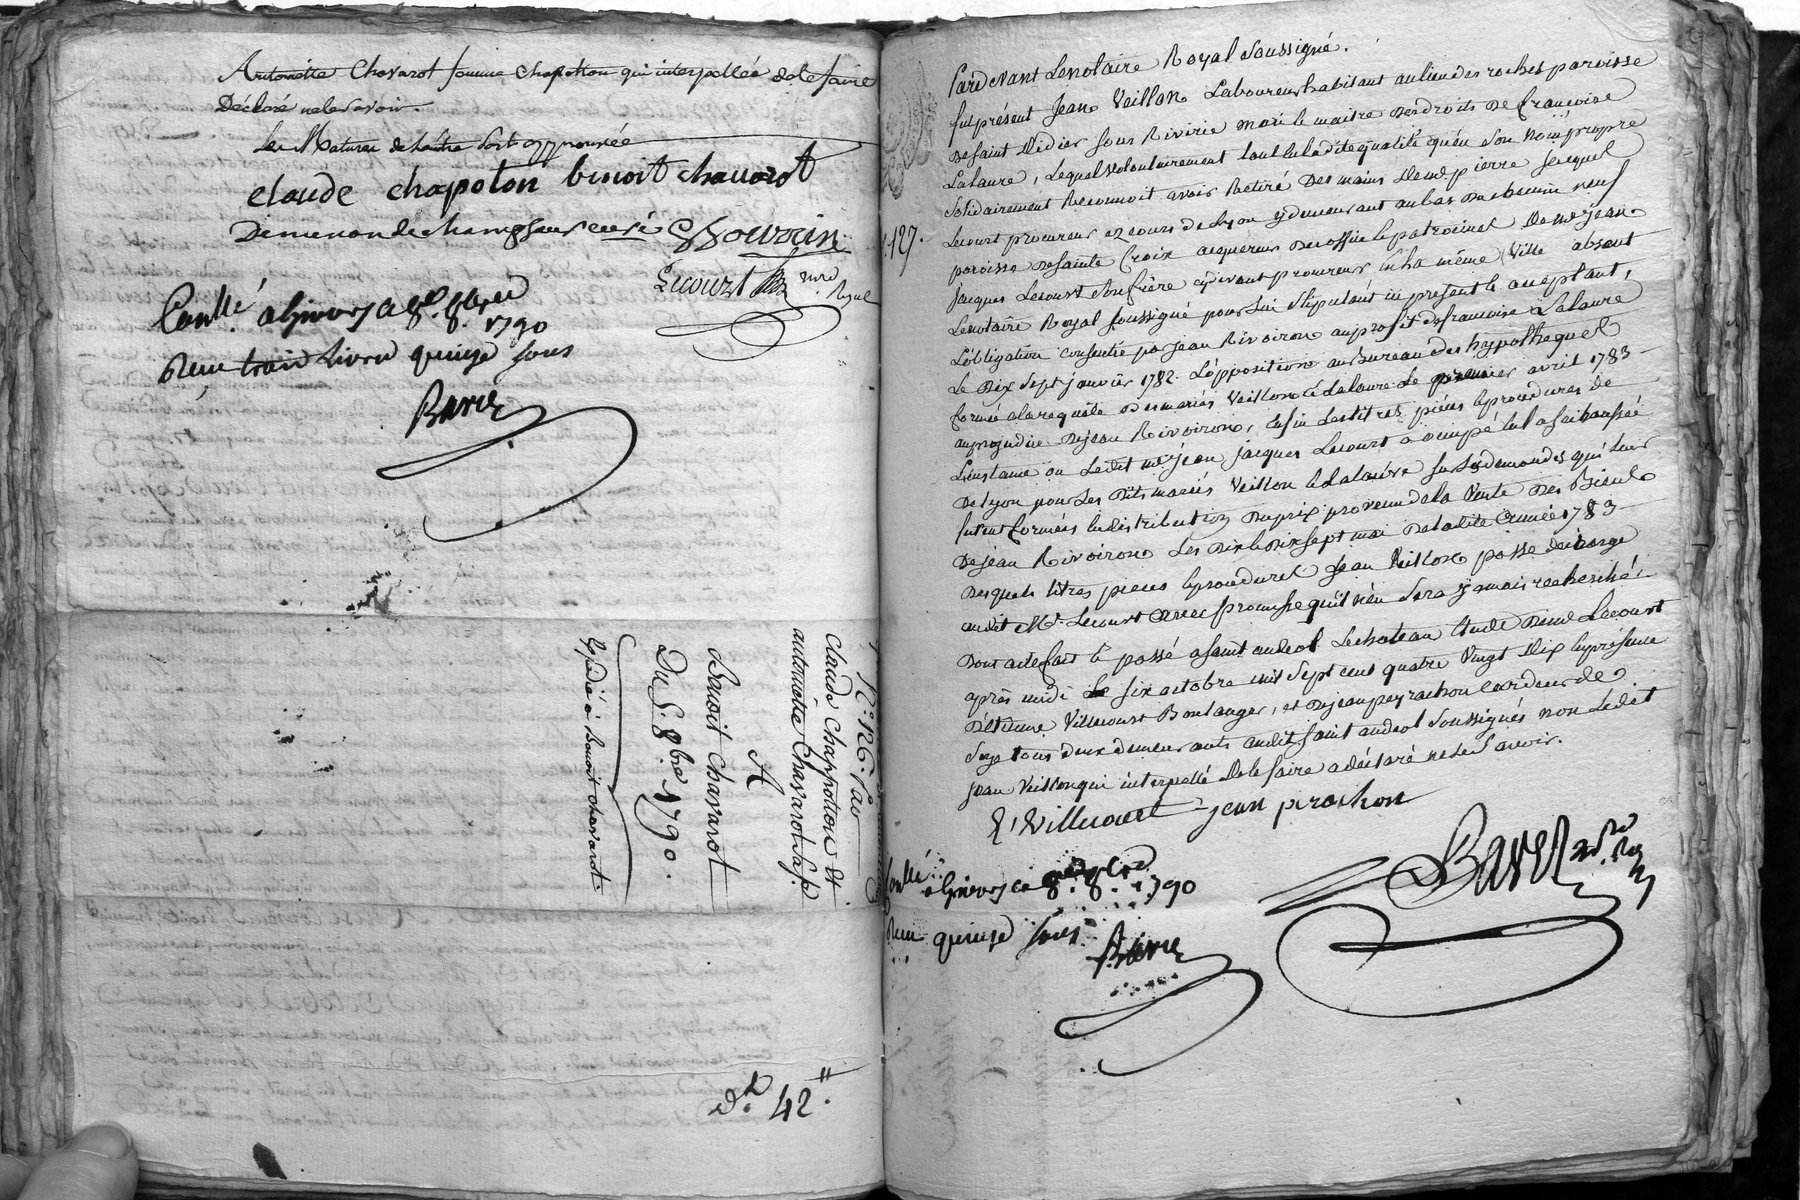 Antoinette Chavarot femme Chapotton qui interpellée de le faire
Déclaré ne le savoir
La Nature de l'autre Part approuvée
claude chapoton benoit chauarot
Demenon de champsaur curé
Lecourt nre Royal
Conllé a Givors ce 8e 8bre 1790
Reçu trois Livres quinze sous
Baret
No 126. Par
Claude Chappotton et
antoinette Chavarot sa f.
A
Benoit Chavarot
Du 5. 8bre 1790.
Expédié à Benoit Chavarot
Dt 42"
127.
Pardevant Le notaire Royal soussigné.
fut présent Jean Veillon Laboureur habitant au lieu des roches paroisse
De saint Didier sous Rivirie mari et maitre des droits de francoise
Lalaure, Lequel volontairement tant en la dite qualité qu'en son nom propre
Solidairement Reconnoit avoir Retiré Des mains De me pierre Jacques
Lecourt procureur ez cours de Lyon y demeurant au bas du chemin neuf
paroisse De sainte Croix acquéreur De office et patrocinet De me jean
Jacques Lecourt son frère cydevant procureur en la même Ville absent
Le notaire Royal soussigné pour lui stipulant ici present et acceptant,
L'obligation consentie par Jean Rivoiron au profit de francoise Lalaure
Le Dix sept janvier 1782. L'opposition au Bureau des hypotheques
formée a la requête Des mariés Veillon et Lalaure Le premier avril 1783
au prejudice De jean Rivoiron, Enfin Les titres, pièces et procedures de
L'instance ou Le dit me jean jacques Lecourt a occupé en la senechaussée
De Lyon pour Les Dits mariés Veillon et Lalaure sur Les demandes qui leur
furent formées en distribution Du prix provenu de la Vente Des Biens
De jean Rivoiron Les Dix et Dix sept mai De ladite Année 1783
Desquels titres pieces et procedures Jean Veillon passe décharge
audit Me Lecourt avec promesse qu'il n'en sera jamais recherché.
Dont acte fait et passé a saint andeol Le chateau Etude De me Lecourt
après midi Le six octobre mil sept cent quatre Vingt Dix En présence
D'étienne Villecourt Boulanger, et De jean peyrachon cardeur de
Soye tous deux demeurants audit saint andeol soussignés non Ledit
jean Veillon qui interpellé De le faire a déclaré ne le savoir.
E, Villecourt jean perachon
Conllé a Givors ce 8e 8bre 1790
Reçu quinze sous
Baret